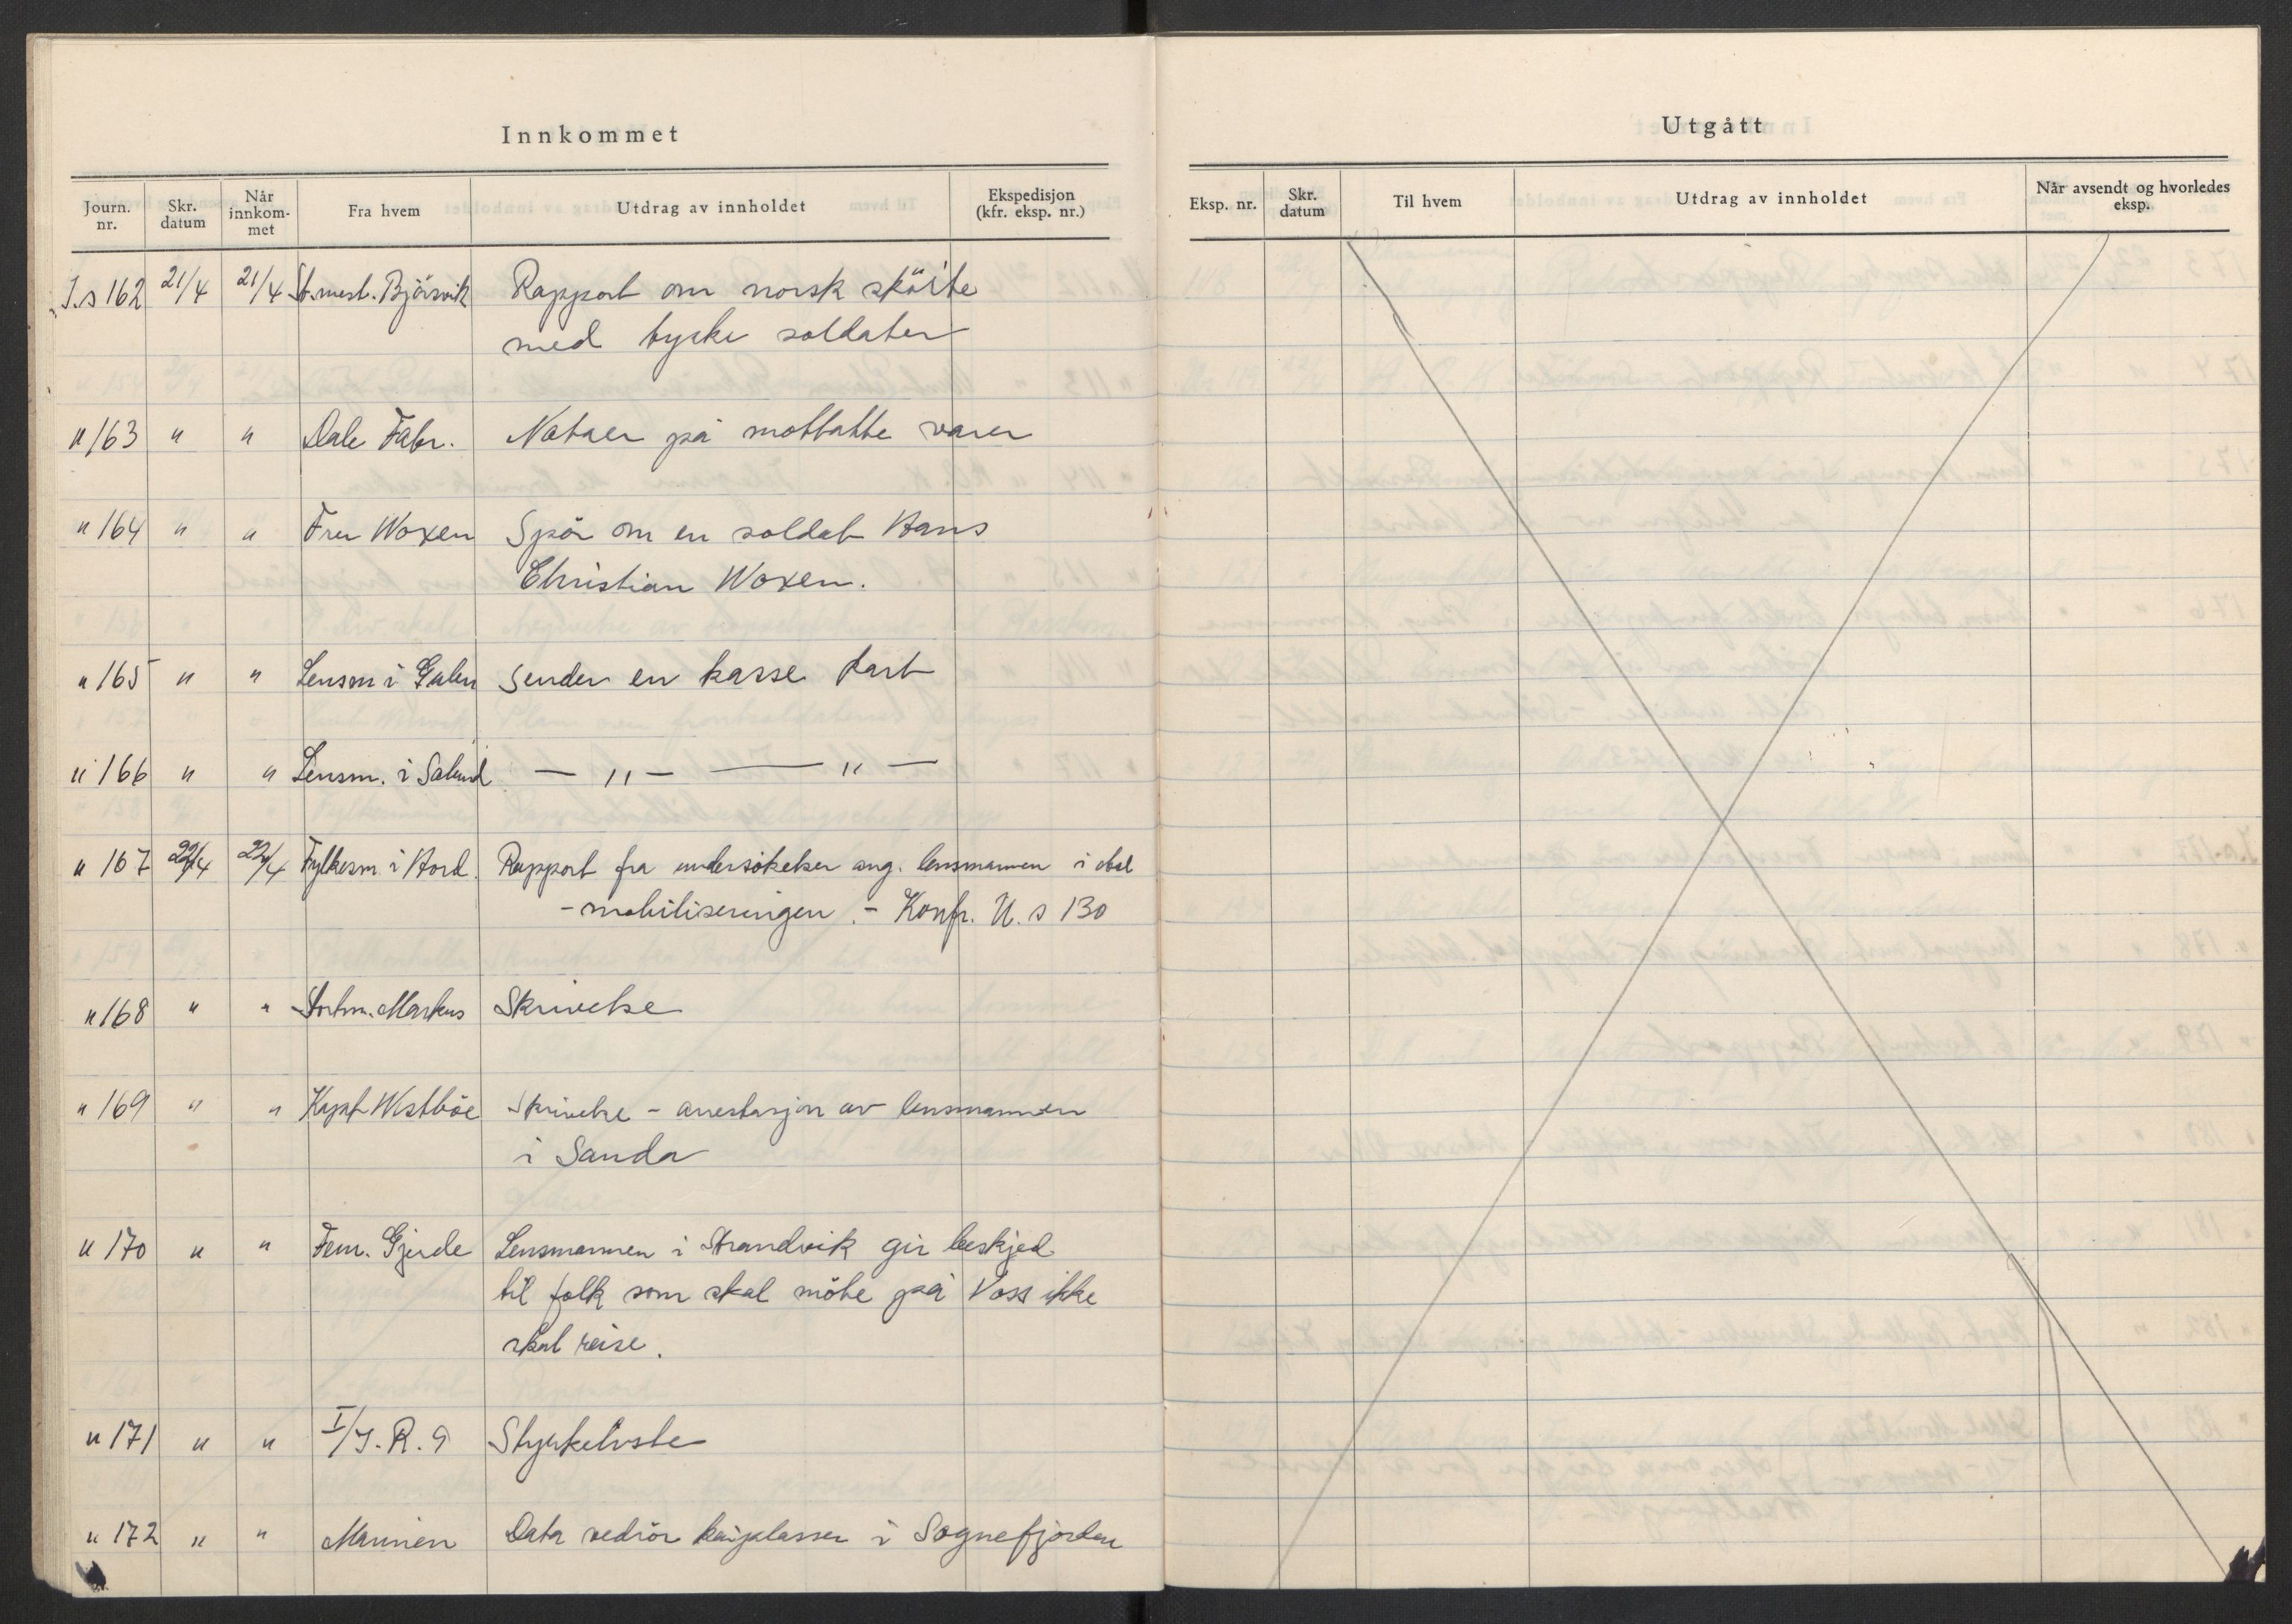 Innkommet
Journ. nr. Skr. datum Når innkom-met Fra hvem Utdrag av innholdet Ekspedisjon (kfr. eksp. nr.)
J.s 162 21/4 21/4 St.mest. Bjørsvik Rapport om norsk skøite
med tyske soldater
" 163 " " Dale Fabr. Notaer på mottatte varer
" 164 " " Fru Woxen Spør om en soldat Hans
Christian Woxen.
" 165 " " Lensm i Gulen Sender en kasse kart
" 166 " " Lensm. i Solund — " — — " —
" 167 22/4 22/4 Fylkesm i Hord. Rapport fra undersøkelser ang. lensmannen i
- mobiliseringen. - Konfr. U.s 130
" 168 " " Stortm. Markus Skrivelse
" 169 " " Kapt Westbøe Skrivelse - arrestasjon av lensmannen
i Sanda
" 170 " " Fenr. Gjerde Lensmannen i Strandvik gir beskjed
til folk som skal møte på Voss ikke
skal reise.
" 171 " " I/J.R. 9 Styrkeliste
" 172 " " Marinen Data vedrør kaiplasser i Sognefjorden
Utgått
Eksp. nr. Skr. datum Til hvem Utdrag av innholdet Når avsendt og hvorledes eksp.